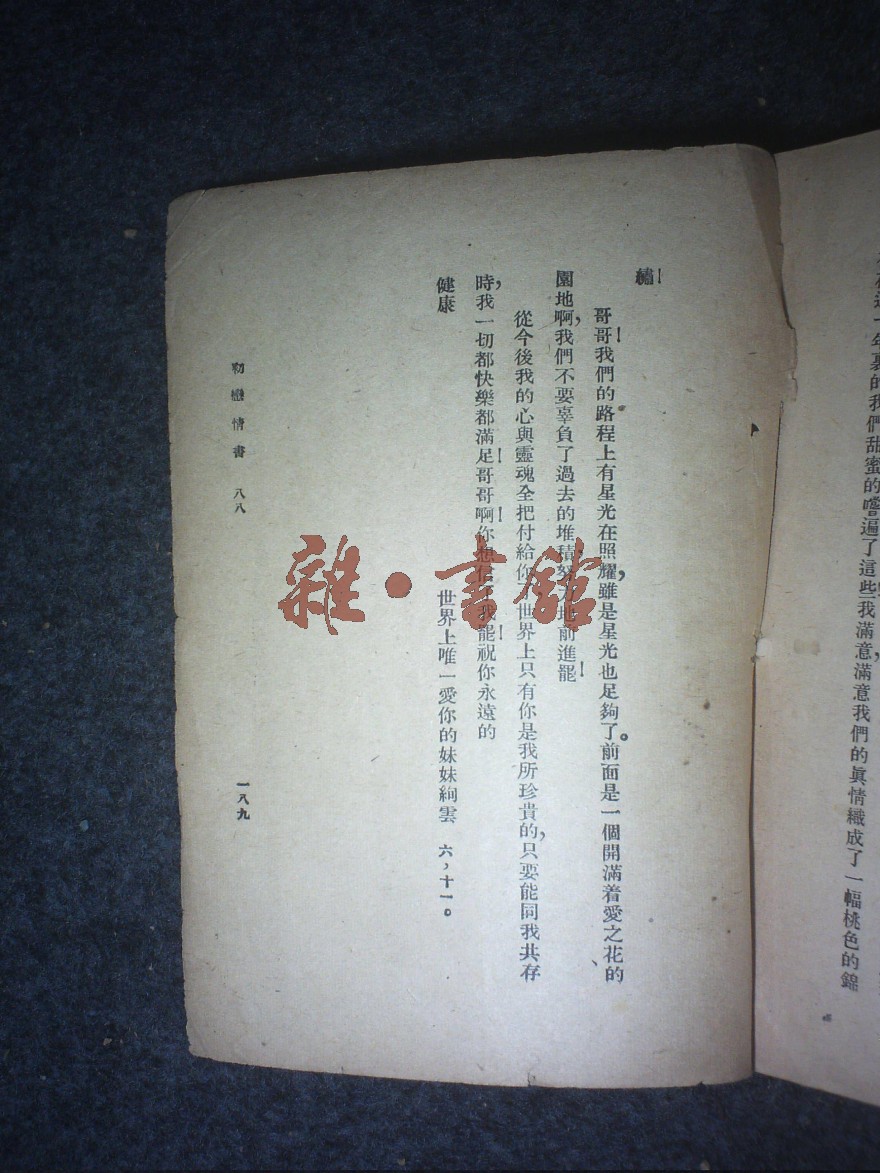 這一年裏的我們甜蜜的嚐遍了這些我滿意滿意我們的眞情織成了一幅桃色的錦
繡!
哥哥!我們的路程上有星光在照耀,雖是星光也足夠了。前面是一個開滿着愛之花的
園地啊,我們不要辜負了過去的堆積,努力地前進罷!
從今後我的心與靈魂全把付給你了世界上只有你是我所珍貴的,只要能同我共存
時,我一切都快樂都滿足!哥哥啊!你相信了我罷!祝你永遠的
健康
世界上唯一愛你的妹妹絢雲 六,十一。
初戀情書 八八
一八九
雜·書館